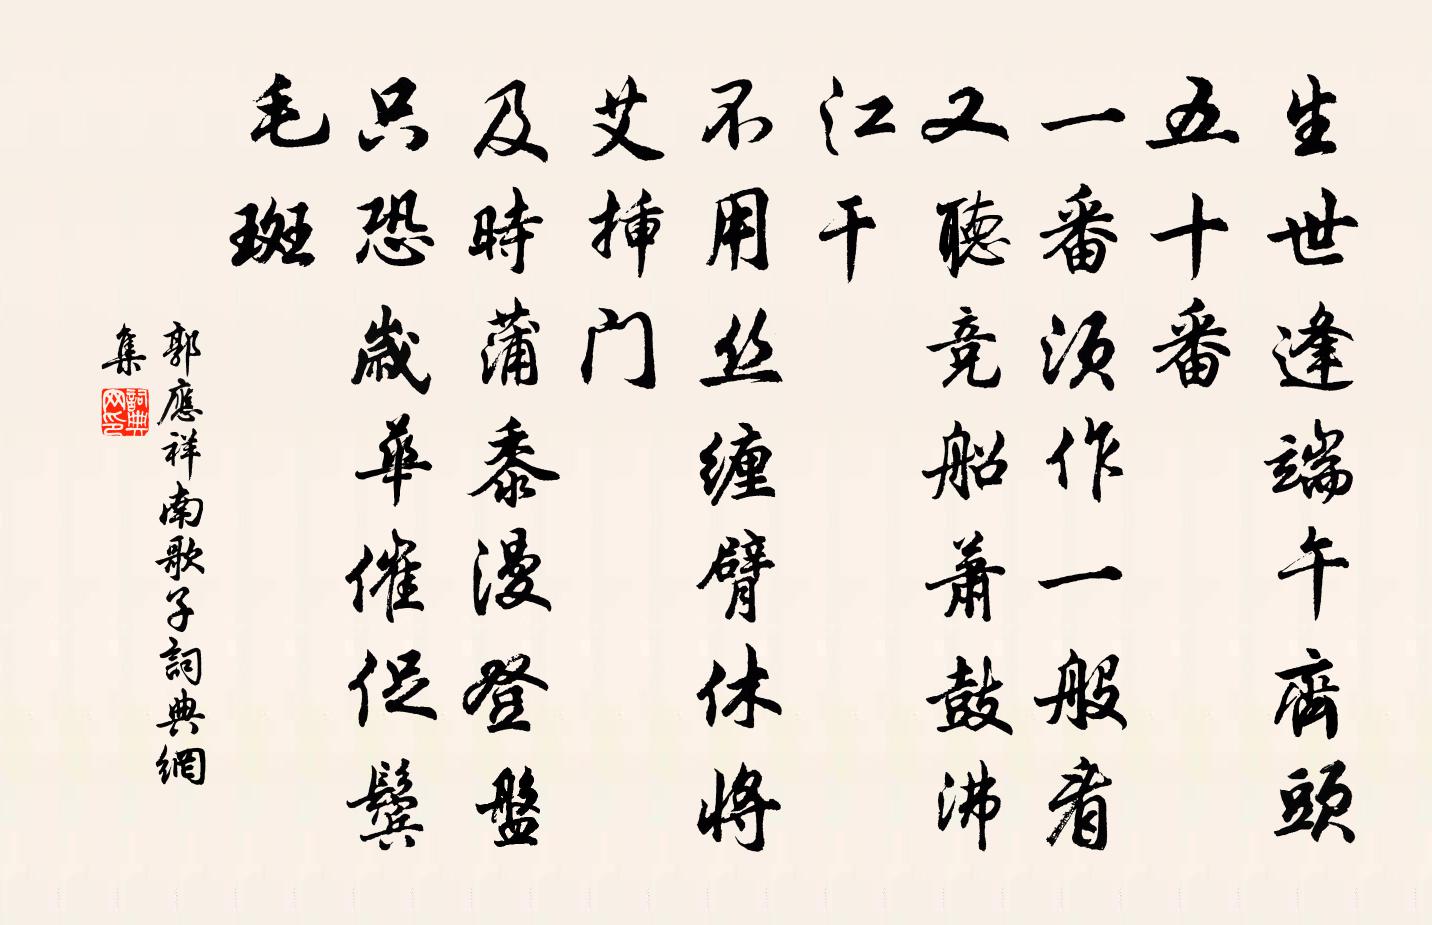 生世逢端午齊頭
五十番
一番須作一般看
又聽競船萧鼓沸
江干
不用丝缠臂休將
艾揷门
及時蒲黍漫登盤
只恐歲華催促鬓
毛斑
郭應祥南歌子詞典網
集
詞典
网印